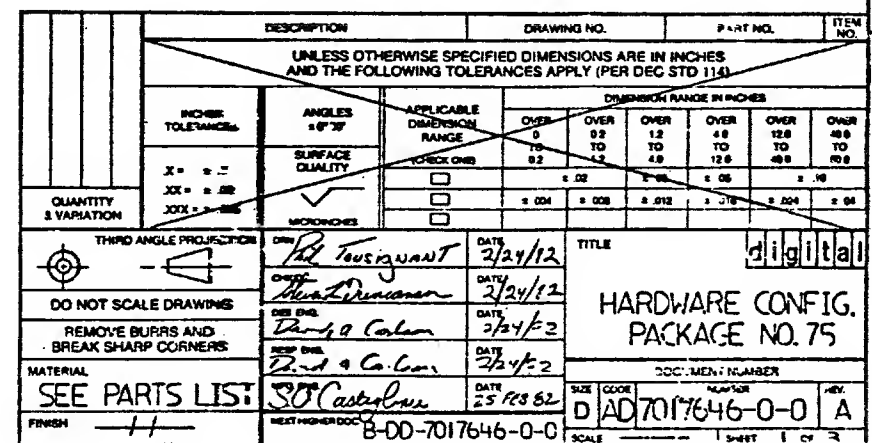 DESCRIPTION DRAWING NO. PART NO. ITEM NO.
UNLESS OTHERWISE SPECIFIED DIMENSIONS ARE IN INCHES
AND THE FOLLOWING TOLERANCES APPLY (PER DEC STD 114)
QUANTITY & VARIATION
INCHES TOLERANCES
.X= ±
.XX= ± .02
.XXX= ±
ANGLES
± 0° 30'
SURFACE QUALITY
MICROINCHES
APPLICABLE DIMENSION RANGE
(CHECK ONE)
DIMENSION RANGE IN INCHES
OVER OVER OVER OVER OVER OVER
0 0.2 1.2 4.0 12.0 40.0
TO TO TO TO TO TO
0.2 1.2 4.0 12.0 40.0
± .02 ± .05
± .004 ± .008 ± .012 ± .024
THIRD ANGLE PROJECTION
DO NOT SCALE DRAWING
REMOVE BURRS AND
BREAK SHARP CORNERS
MATERIAL
SEE PARTS LIST
FINISH
DRN Phil Tousignant DATE 2/24/82
DATE 2/24/82
DES ENG. David A DATE 2/24/82
RESP ENG. David A DATE 2/24/82
DATE 25 FEB 82
NEXT HIGHER DOC B-DD-7017646-0-0
TITLE
digital
HARDWARE CONFIG.
PACKAGE NO. 75
DOCUMENT NUMBER
SIZE CODE NUMBER REV.
D AD 7017646-0-0 A
SCALE SHEET 1 OF 3